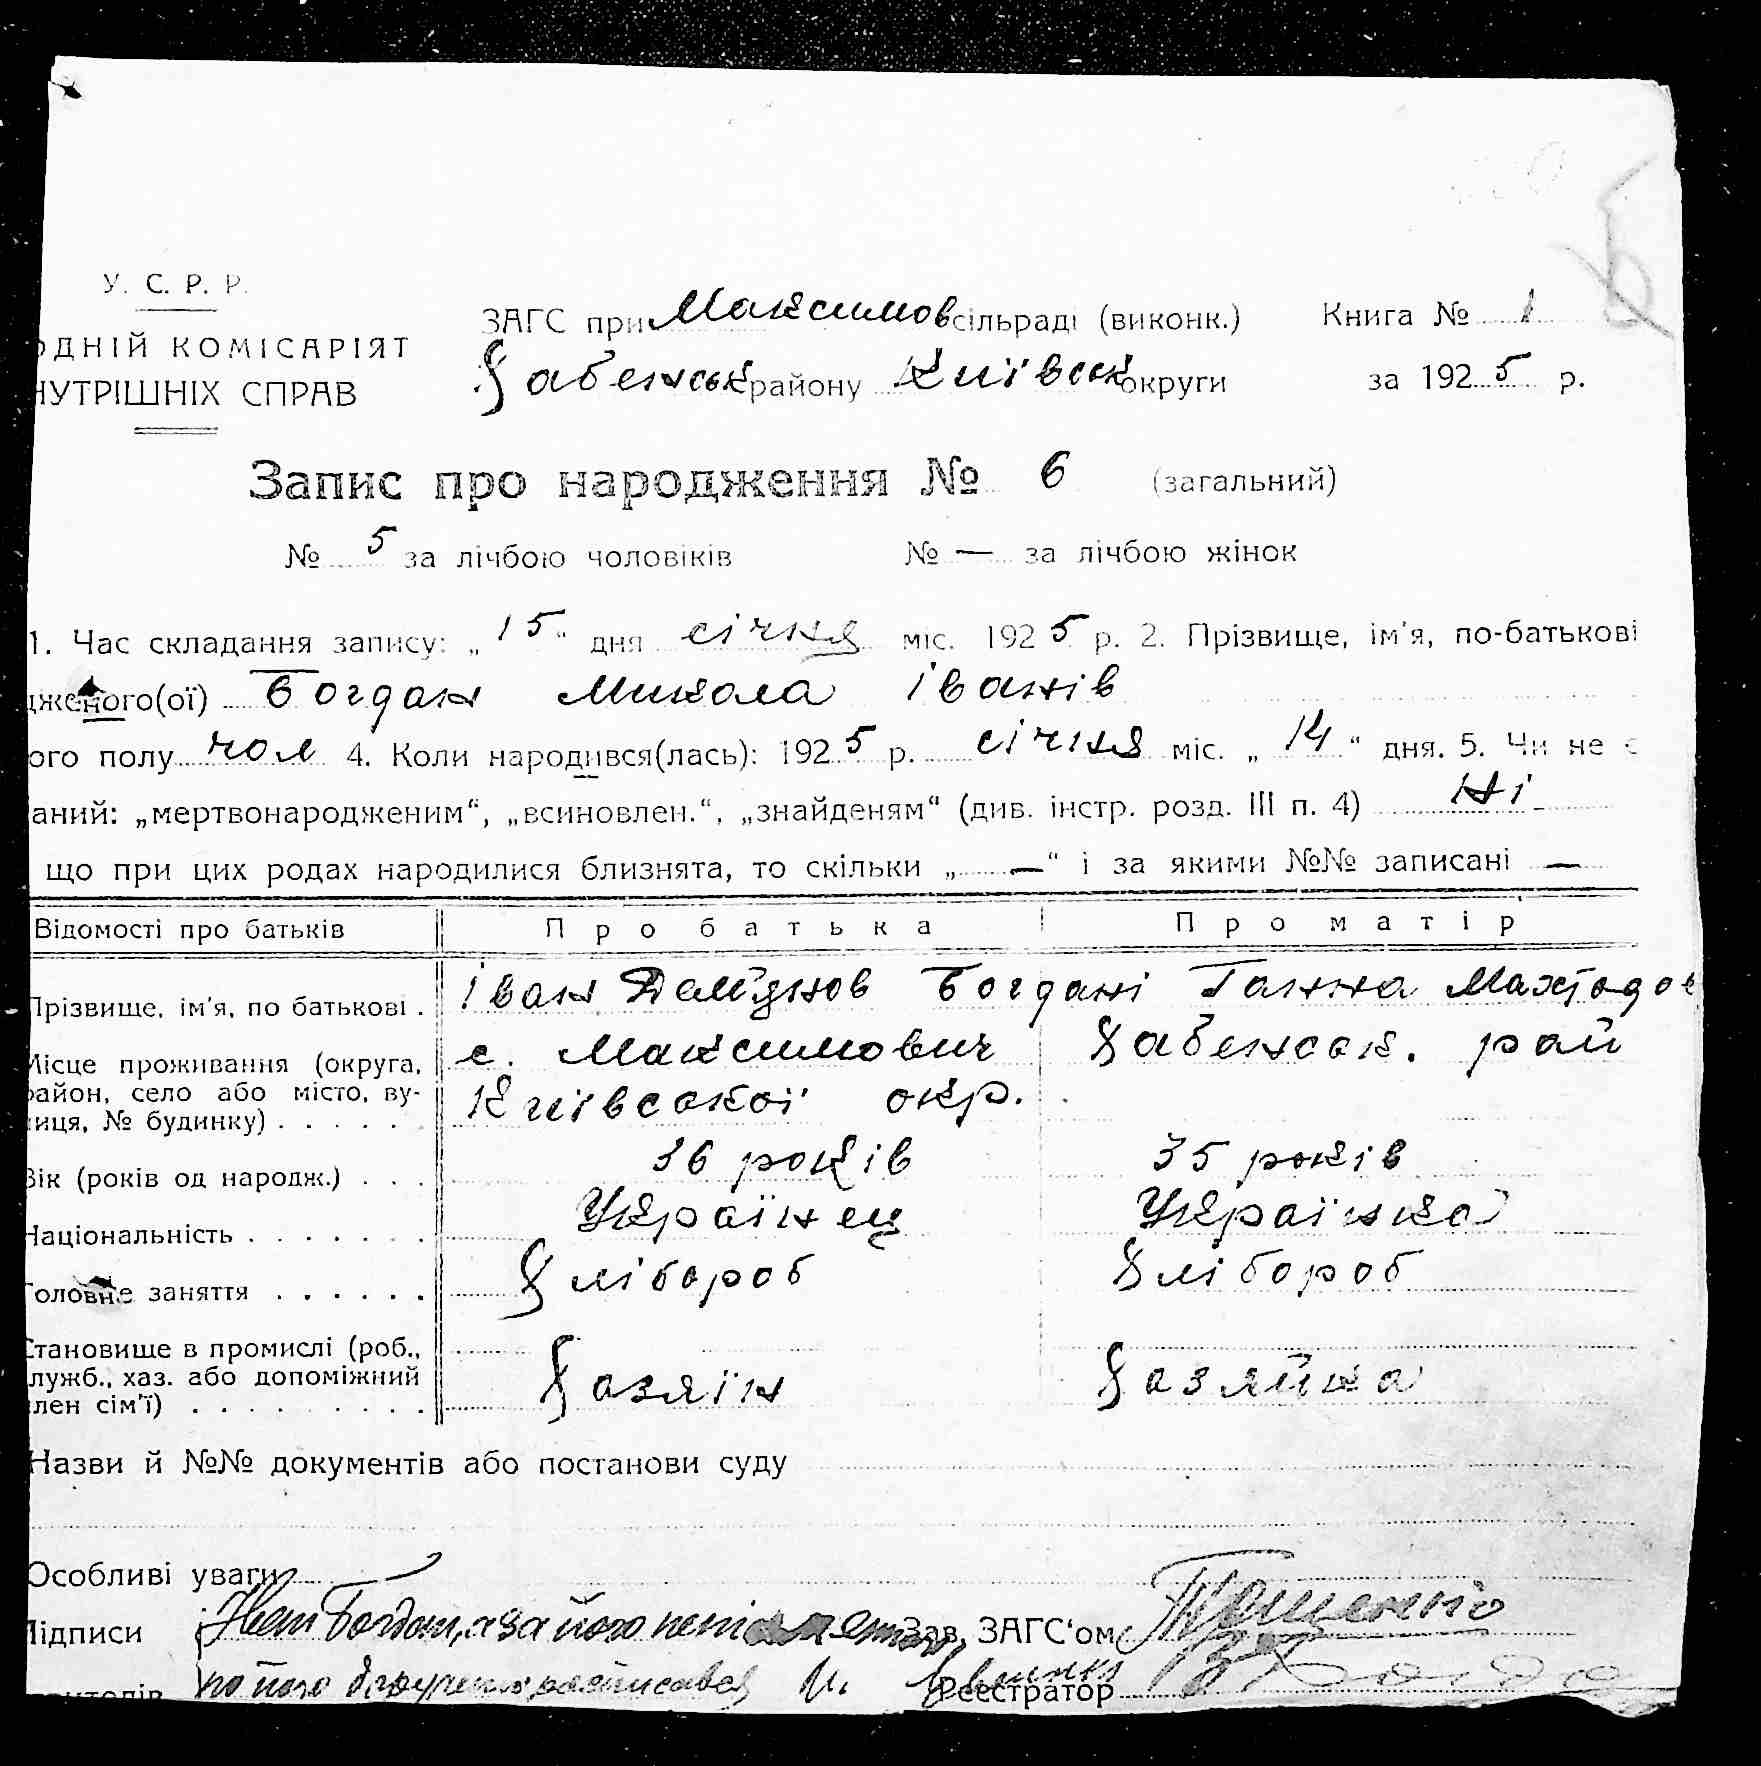 У. С. Р. Р.
ОДНІЙ КОМІСАРІЯТ
НУТРІШНІХ СПРАВ
ЗАГС при Максимов сільраді (виконк.) Книга № 1
Хабенськ району Київськ округи за 1925 р.
Запис про народження № 6 (загальний)
№ 5 за лічбою чоловіків № — за лічбою жінок
1. Час складання запису: „15“ дня січня міс. 1925 р. 2. Прізвище, ім'я, по-батькові
дженого(ої) Богдан Микола Іванів
ого полу чол 4. Коли народився(лась): 1925 р. січня міс. „14“ дня. 5. Чи не є
аний: „мертвонародженим“, „всиновлен.“, „знайденям“ (див. інстр. розд. III п. 4) Ні
що при цих родах народилися близнята, то скільки „—“ і за якими №№ записані —
Відомості про батьків Про батька Про матір
Прізвище, ім'я, по батькові . Іван Дем'янов Богдані Ганна
Місце проживання (округа, с. Максимович Хабенськ. рай
район, село або місто, ву- Київської окр.
лиця, № будинку) . . . . .
Вік (років од народж.) . . . 36 років 35 років
Національність . . . . . . . Українец Українка
Головне заняття . . . . . . Хлібороб Хлібороб
Становище в промислі (роб.,
служб., хаз. або допоміжний Хазяїн Хазяйка
член сім'ї) . . . . . . . . .
Назви й №№ документів або постанови суду
Особливі уваги
Підписи Іван Богдан, а за його Зав. ЗАГС'ом
по його Реєстратор